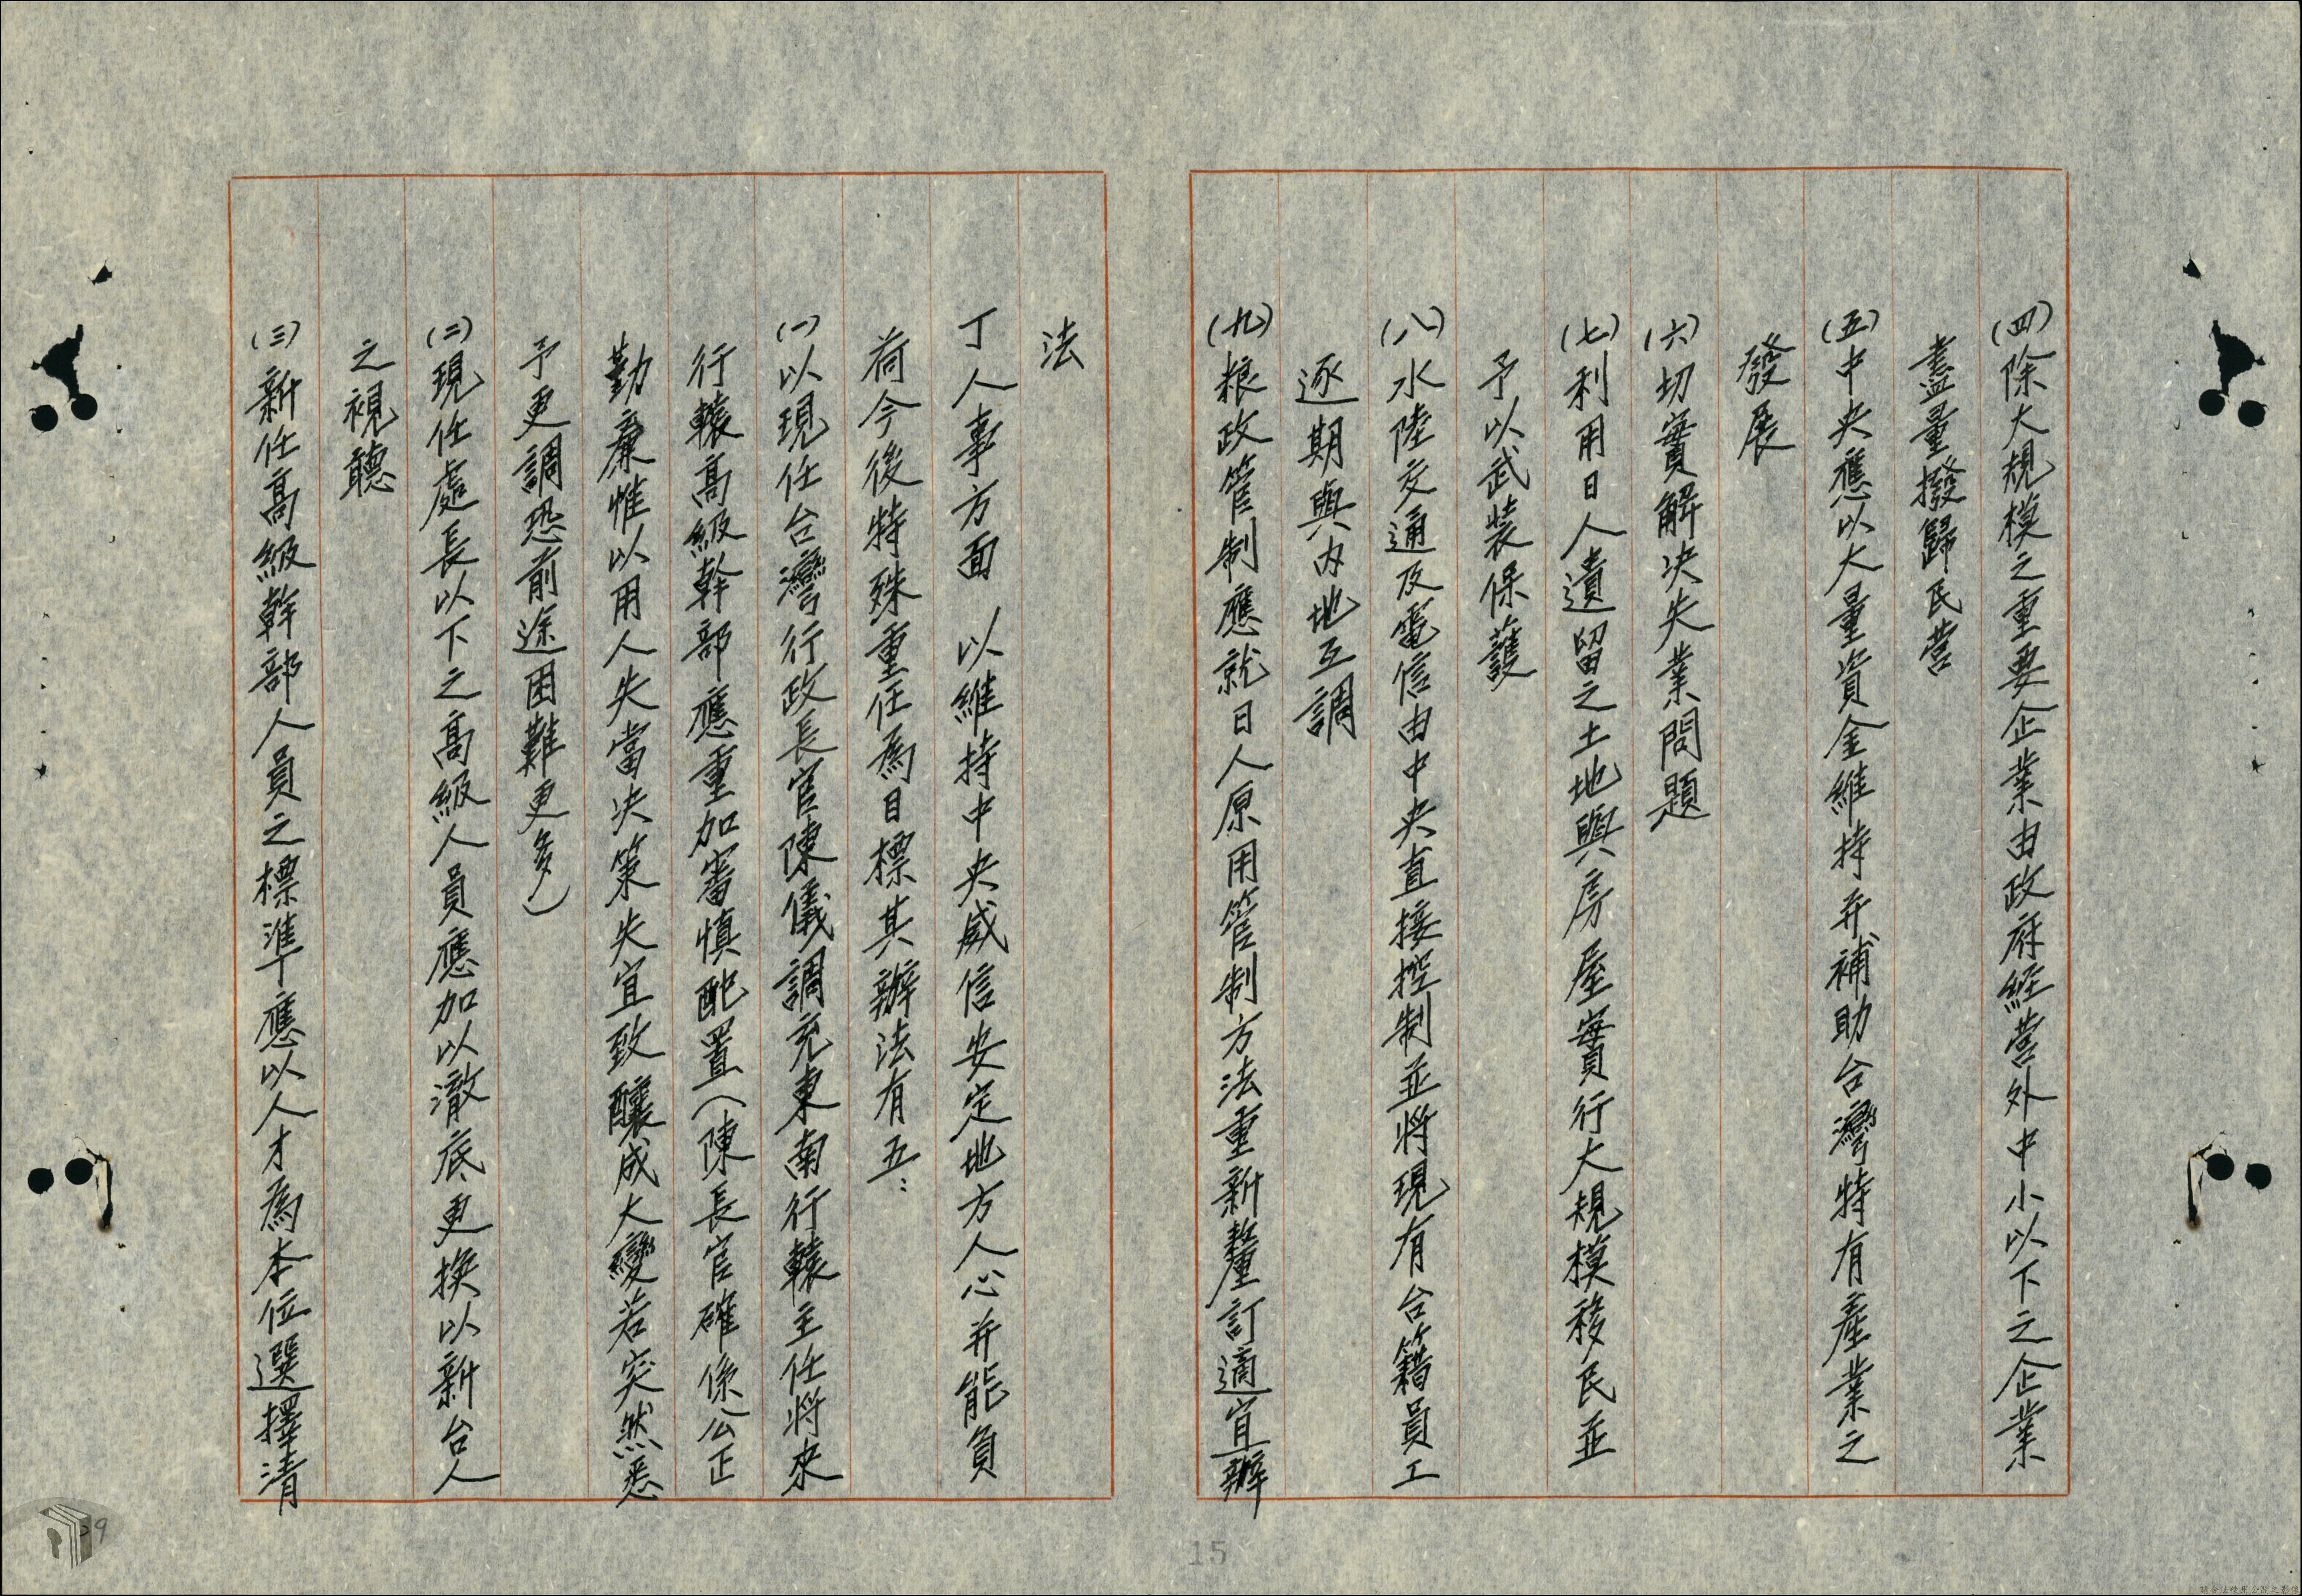 (四)除大規模之重要企業由政府経营外中小以下之企業
盡量撥歸民营
(五)中央應以大量資金維持并補助台灣特有產業之
發展
(六)切實解决失業問題
(七)利用日人遺留之土地與房屋實行大規模移民並
予以武裝保護
(八)水陸交通及電信由中央直接控制並将現有台籍員工
逐期與内地互調
(九)粮政管制應就日人原用管制方法重新釐訂適宜辦
法
丁人事方面 以維持中央威信安定地方人心并能負
荷今後特殊重任為目標其辦法有五：
(一)以現任台灣行政長官陳儀調充東南行轅主任将來
行轅高級幹部應重加審慎配置（陳長官確係公正
勤廉惟以用人失當决策失宜致釀成大變若突然悉
予更調恐前途困難更多）
(二)現任處長以下之高級人員應加以澈底更換以新台人
之視聽
(三)新任高級幹部人員之標準應以人才為本位選擇清
15